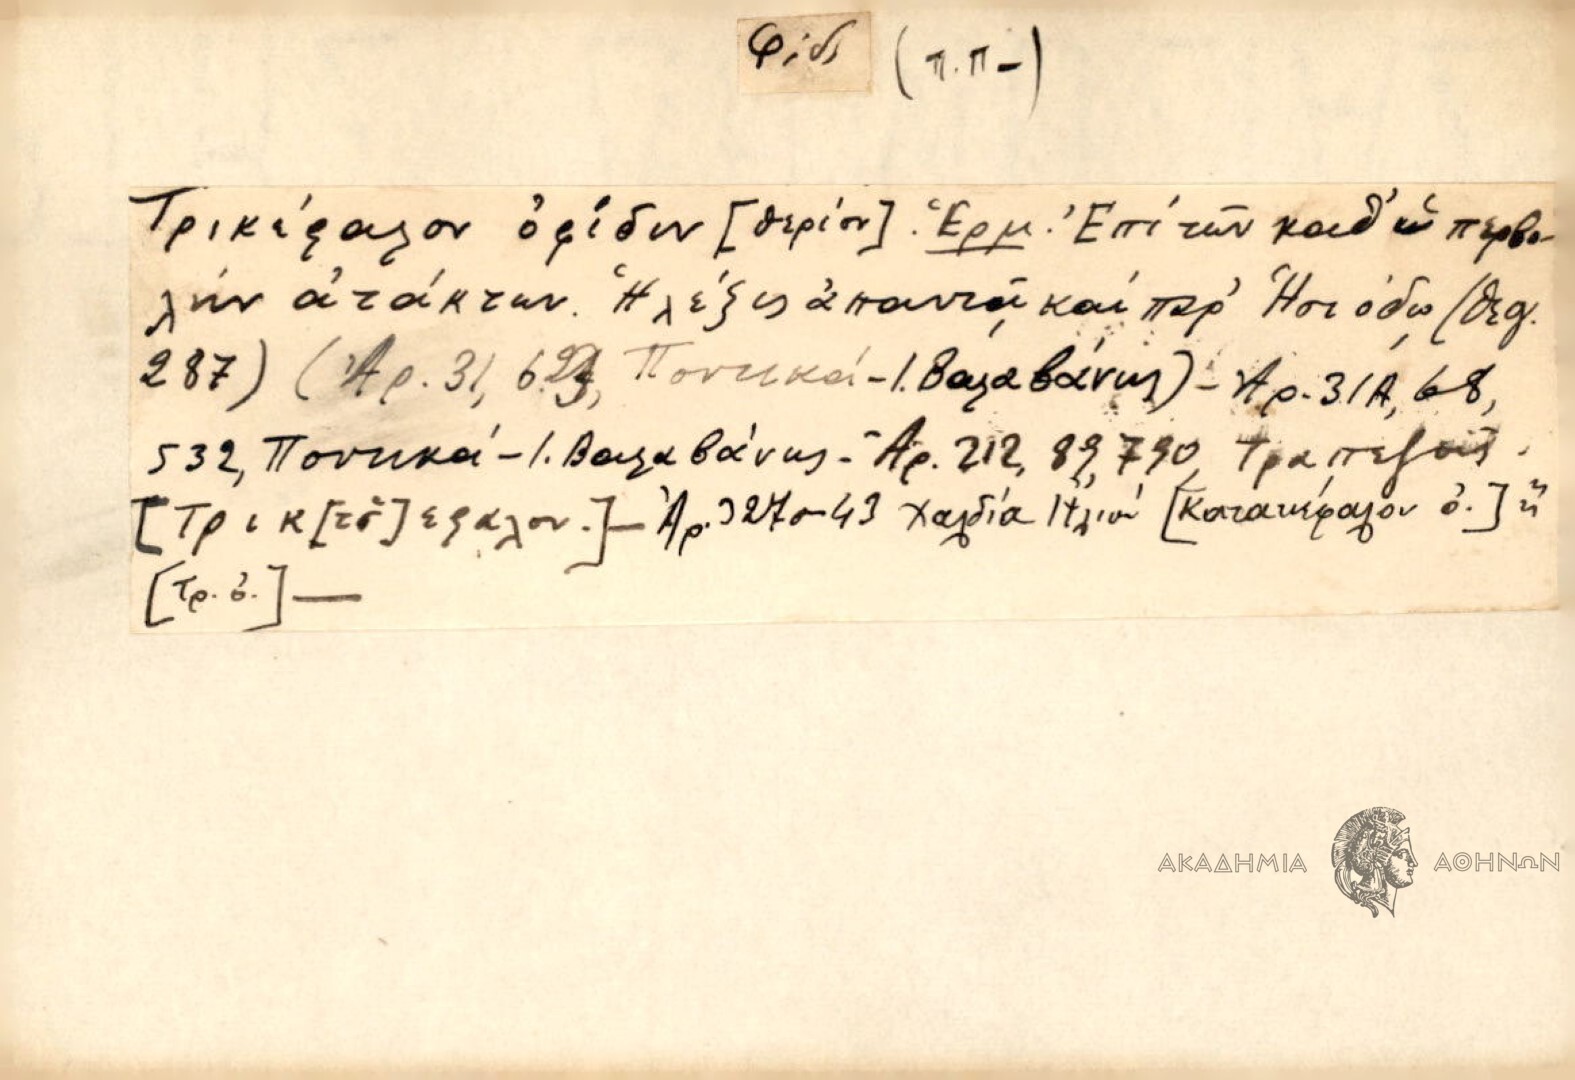 Φίδι (π.π-)
Τρικέφαλον ὀφίδιν [θερίον]. Ἑρμ. Ἐπί τῶν καθ' ὑπερβο-
λήν ἀτάκτων. Ἡ λέξις ἀπαντᾷ καί παρ' Ἡσιόδῳ (Θεογ.
287) (Ἀρ. 31, Ποντικά - Ι. Βαλαβάνης) - Ἀρ. 31Α, 68,
532, Ποντικά - Ι. Βαλαβάνης - Ἀρ. 212, 89, 790, Τραπεζοῦς.
[Τρικ[τσ̌]εφαλον.] - Ἀρ. 43 Χαλδία [Κατακέφαλον ὀ.] ἤ
[τρ. ὀ.] —
ΑΚΑΔΗΜΙΑ ΑΘΗΝΩΝ